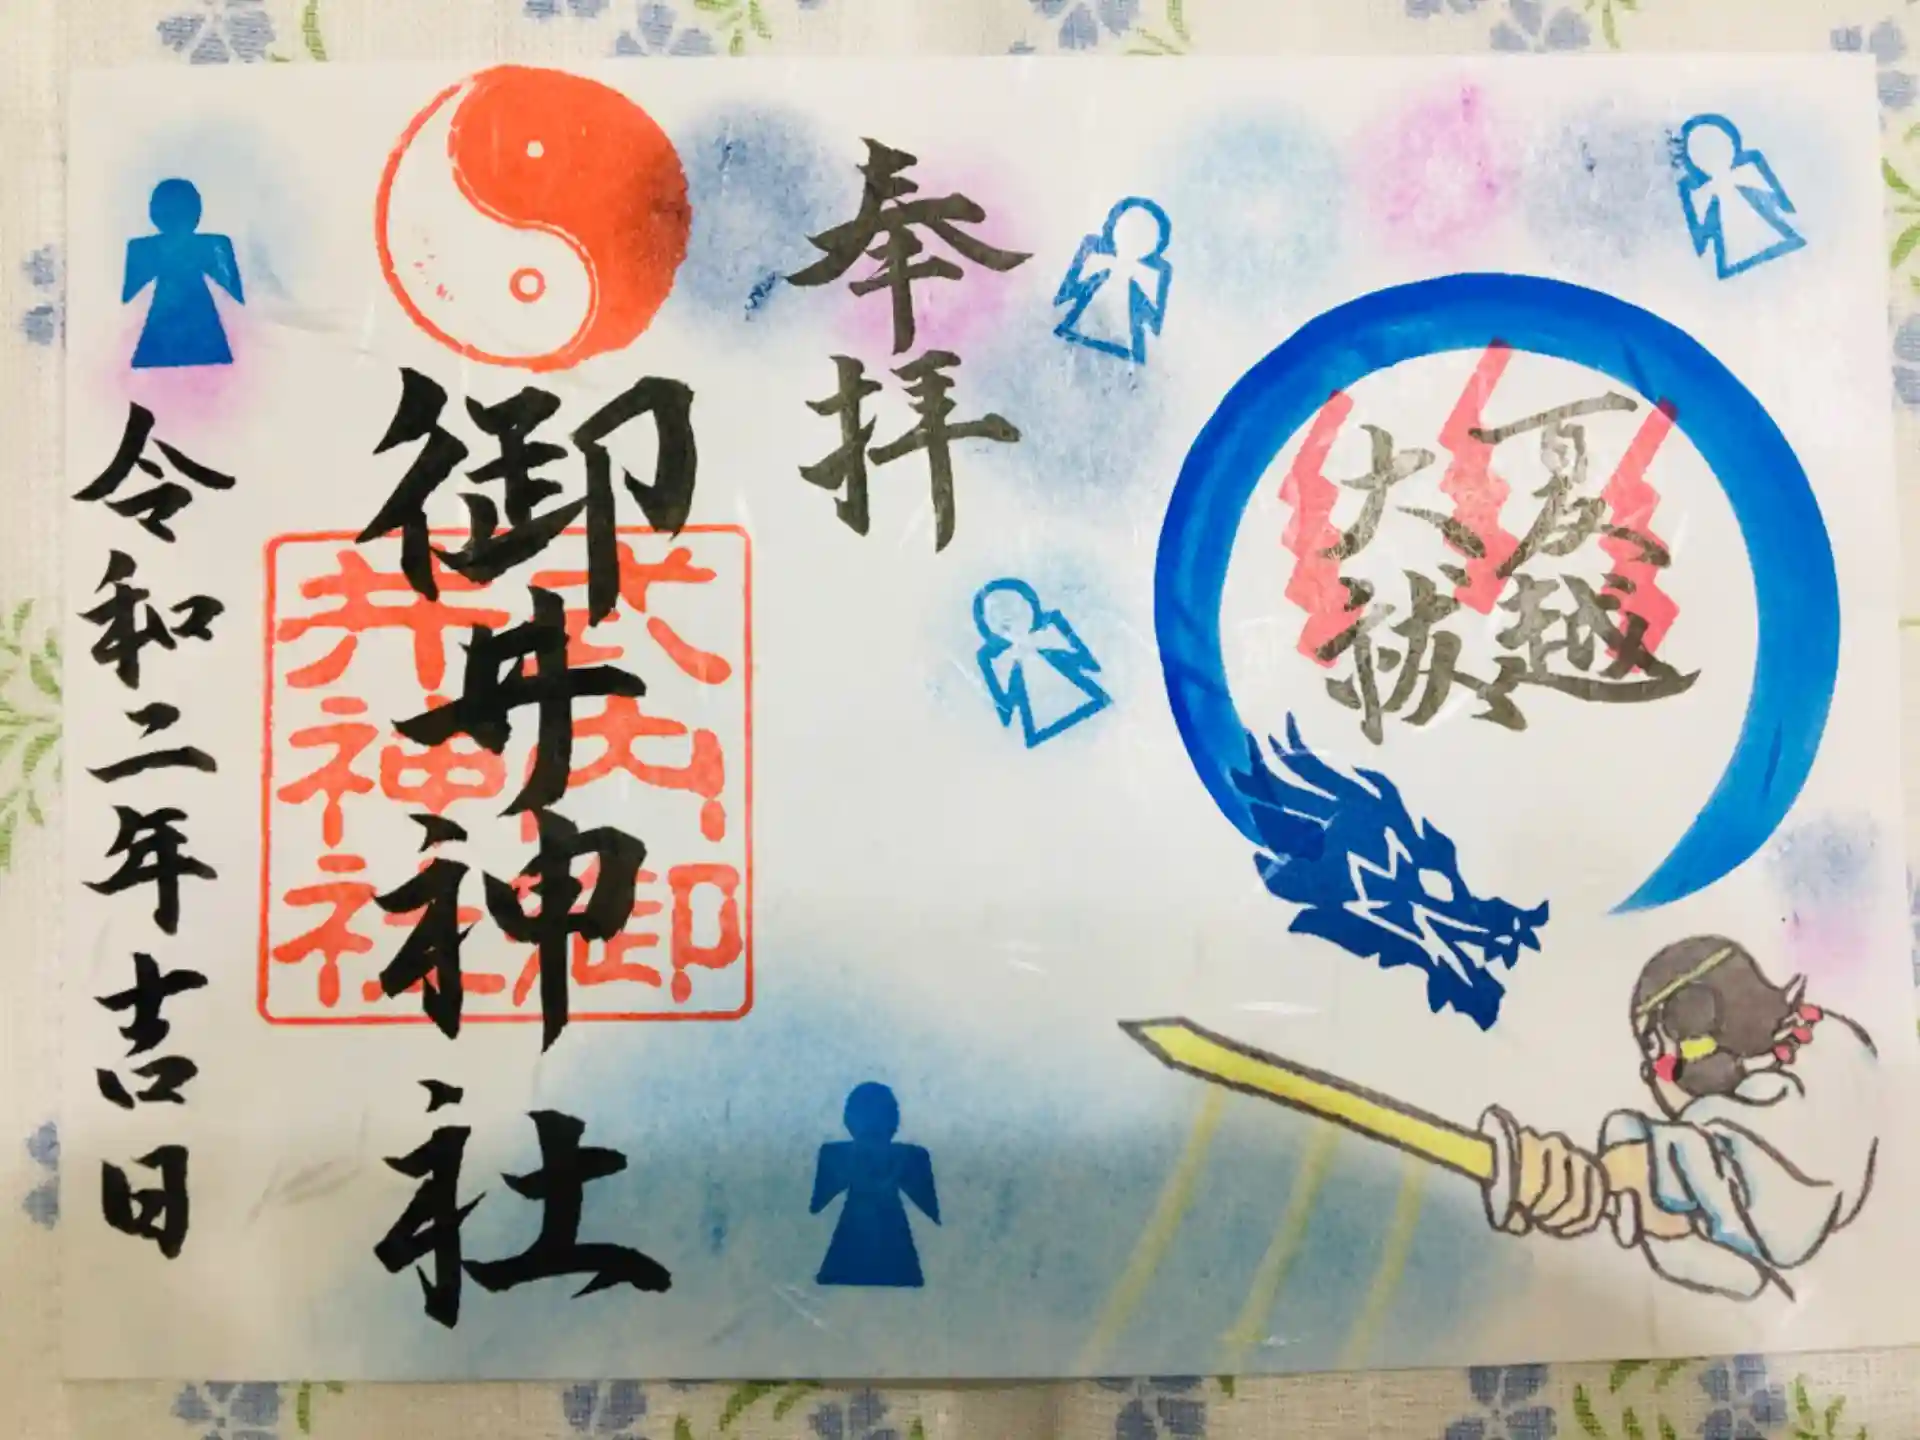 夏越
大祓
奉拝
御井神社
武内御
井神社
令和二年吉日